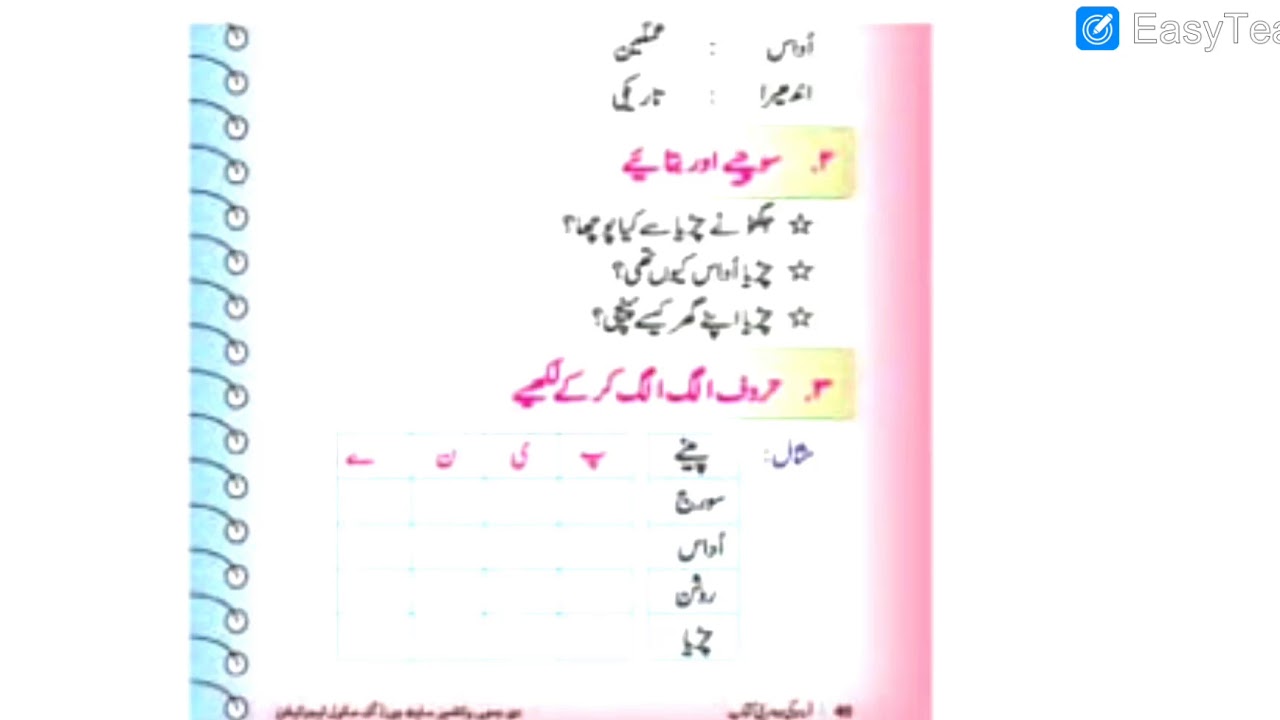 EasyTea
اُداس : غمگین
اندھیرا : تاریکی
۲. سوچیے اور بتائیے
☆ جگنو نے چڑیا سے کیا پوچھا؟
☆ چڑیا اُداس کیوں تھی؟
☆ چڑیا اپنے گھر کیسے پہنچی؟
۳. حروف الگ الگ کرکے لکھیے
مثال: پینے پ ی ن ے
سورج
اُداس
روشن
چڑیا